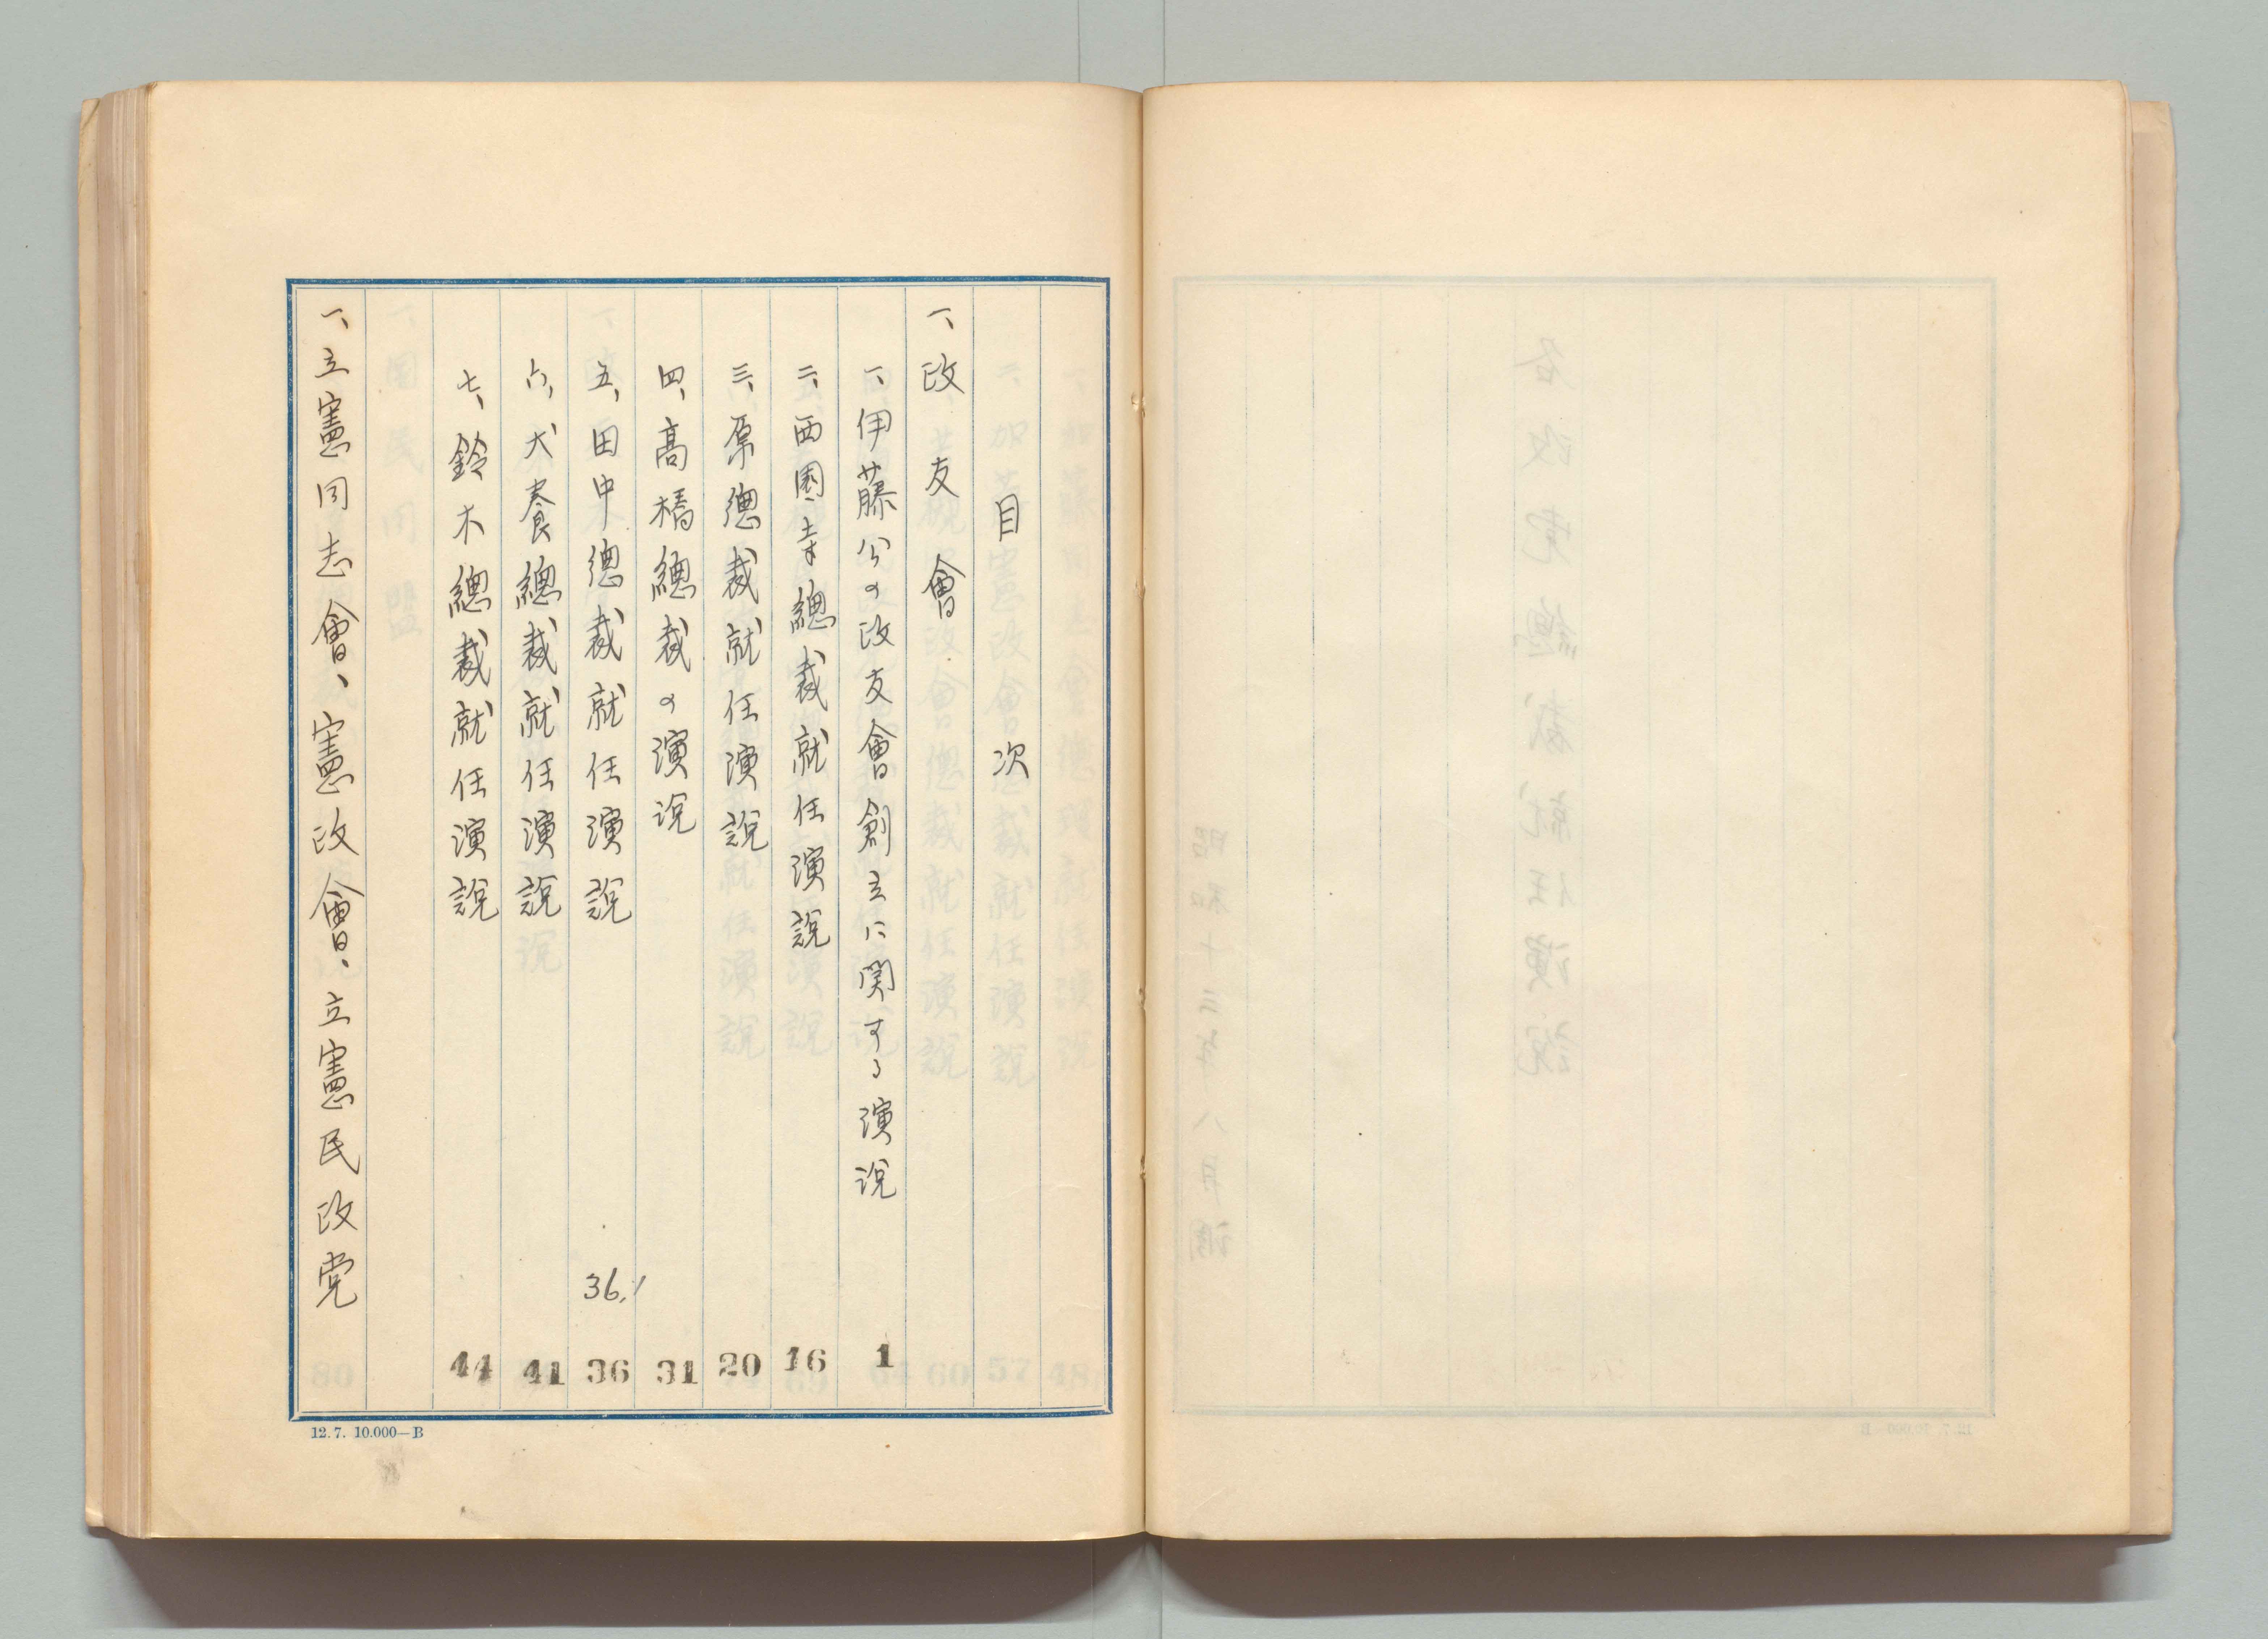 目次
一、政友會
一、伊藤公の政友會創立に関する演説 1
二、西園寺總裁就任演説 16
三、原總裁就任演説 20
四、高橋總裁の演説 31
五、田中總裁就任演説 36.1 36
六、犬養總裁就任演説 41
七、鈴木總裁就任演説 44
一、立憲同志會、憲政會、立憲民政党
12.7. 10.000—B